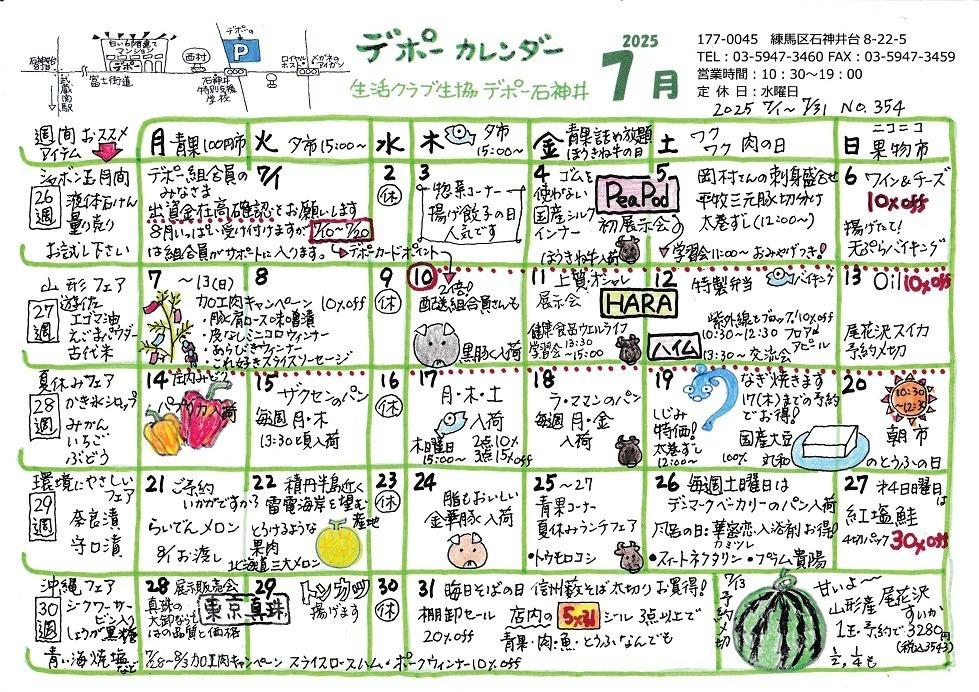 デポー カレンダー
2025
7月
生活クラブ生協 デポー石神井
177-0045 練馬区石神井台8-22-5
TEL：03-5947-3460 FAX：03-5947-3459
営業時間：10：30～19：00
定 休 日：水曜日
2025 7/1～7/31 No.354
デポーの
P
白い6階建て
マンション
デポー
西村
富士街道
武蔵関駅
石神井
特別支援
学校
ロイヤル
ホスト
週間おススメ
アイテム
月 青果100円市
火 夕市15:00～
水
木 夕市
15:00～
金 青果詰め放題
ほうきね牛の日
土 ワクワク 肉の日
日 ニコニコ
果物市
シャボン玉月間
26週
液体石けん
量り売り
お試し下さい
デポー組合員の
みなさま
7/1
出資金在高確認をお願いします
8月いっぱい受け付けますが 7/10～7/20
は組合員がサポートに入ります。
デポーカードポイント
2
休
3
惣菜コーナー
揚げ餃子の日
人気です
4 ゴムを
使わない
国産シルク
インナー
ほうきね牛入荷
PeaPod
初展示会
5
岡村さんの刺身盛合せ
平牧三元豚切分け
太巻ずし(12:00～)
学習会11:00～おみやげつき!
6 ワイン&チーズ
10%off
揚げたて!
天ぷらバイキング
山形フェア
27週
遊佐
エゴマ油
えごまパウダー
古代米
7 ～13(日)
8
加工肉キャンペーン 10%off
・豚肩ロースの味噌漬
・皮なしミニコロウィンナー
・あらびきウィンナー
・これ好きスライスソーセージ
9
休
10
2倍!
配送組合員さんも
黒豚く入荷
11 上質・オシャレ
展示会
HARA
健康食品ウェルライフ
学習会 13:30
～15:00
12 特製弁当
バイキング
ハイム
紫外線もブロック!10%off
10:30～12:30 フロアアピール
13:30～ 交流会
13 Oil10%off
尾花沢スイカ
予約〆切
夏休みフェア
28週
かき氷シロップ
みかん
いちご
ぶどう
14 庄内みどり
15
ザクセンのパン
毎週 月・木
13:30頃入荷
16
休
17
月・木・土
入荷
木曜日
15:00～
2点10%
3点15%off
18
ラ・ママンのパン
毎週 月・金
入荷
19
なぎ焼きます
17(木)までの予約
でお得!
しじみ
特価!
太巻ずし
12:00～
国産大豆
100% 丸和
のとうふの日
20
10:30
～12:30
朝市
環境にやさしい
フェア
29週
奈良漬
守口漬
21 ご予約
いかがですか?
らいでんメロン
8/1お渡し
22 積丹半島近く
雷電海岸を望む
産地
とろけるような
果肉
北海道三大メロン
23
休
24
脂もおいしい
金華豚入荷
25～27
青果コーナー
夏休みランチフェア
・トウモロコシ
26 毎週土曜日は
デンマークベーカリーのパン入荷
風呂の日:華密恋入浴剤お得!
カミツレ
・スイートネクタリン・プラム貴陽
27 第4日曜日は
紅塩鮭
4切パック30%off
沖縄フェア
30週
シークワーサー
ビン入り
しょうが黒糖
青い海焼塩など
28 展示販売会
真珠の
大切なもの
ほの品質と価格
29
東京真珠
トンカツ
揚げます
30
休
7/28～8/3加工肉キャンペーン スライスロースハム・ポークウィンナー10%off
31 晦日そばの日 信州藪そば太切りお買得!
棚卸セール 店内の 5%引 シール 3点以上で
20%off 青果・肉・魚・とうふなんでも
7/13
予約〆切
甘いよ～
山形産 尾花沢
すいか
1玉・予約で3280円
(税込3543)
1/2, 1/4も